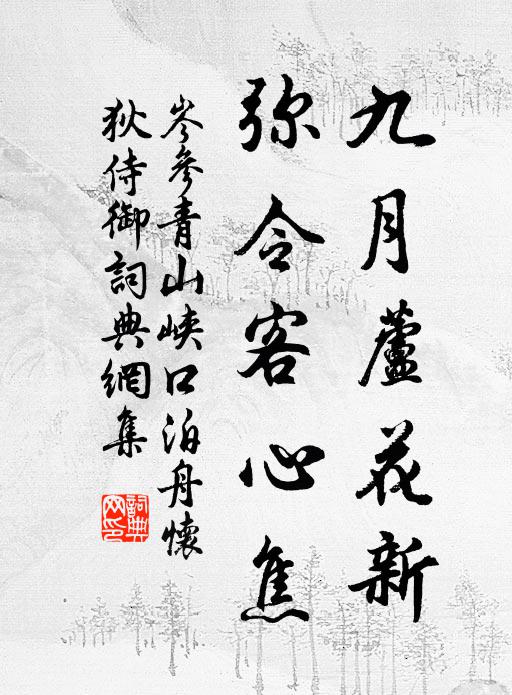 九月蘆花新
弥令客心焦
岑參青山峽口泊舟懷
狄侍御詞典網集
詞典網印